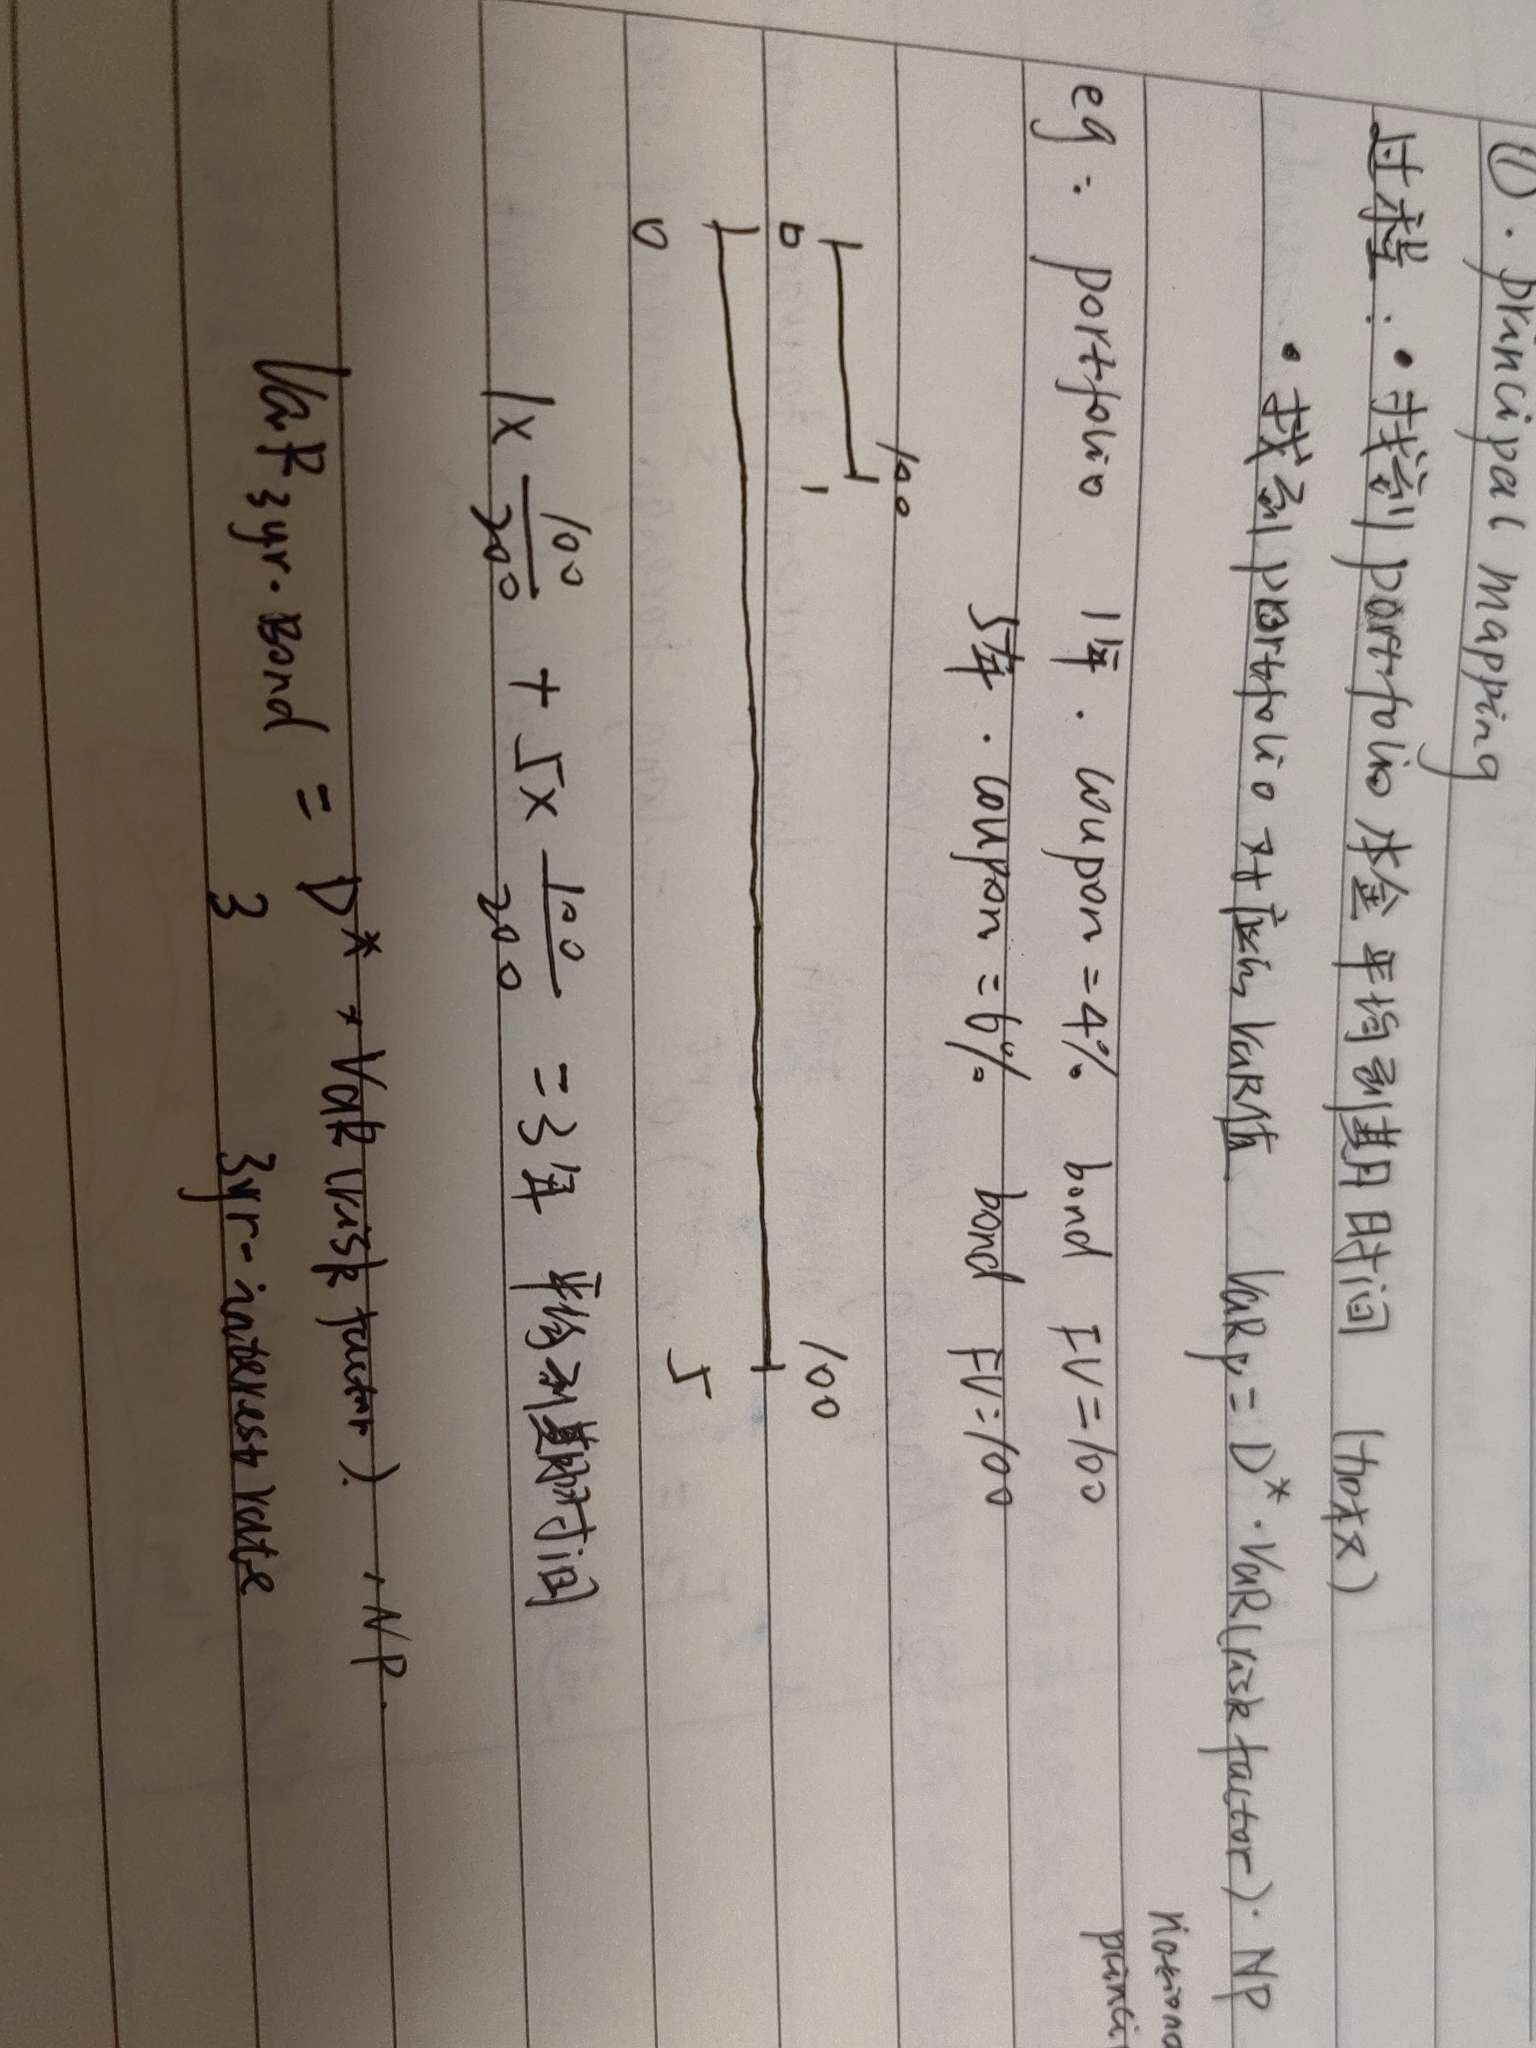 (1). principal mapping
过程: • 找到 portfolio 本金平均到期时间
• 找到 portfolio 对应的 VaR值 VaRp = D* · VaR(risk factor) · NP
notiona
princi
eg: portfolio 1年. coupon = 4% bond FV = 100
5年. coupon = 6% bond FV = 100
100
0 1
100
0 5
1× 100/200 + 5× 100/200 = 3年 平均到期时间
VaR 3yr. Bond = D* * VaR(risk factor). · NP.
3 3yr - interest rate